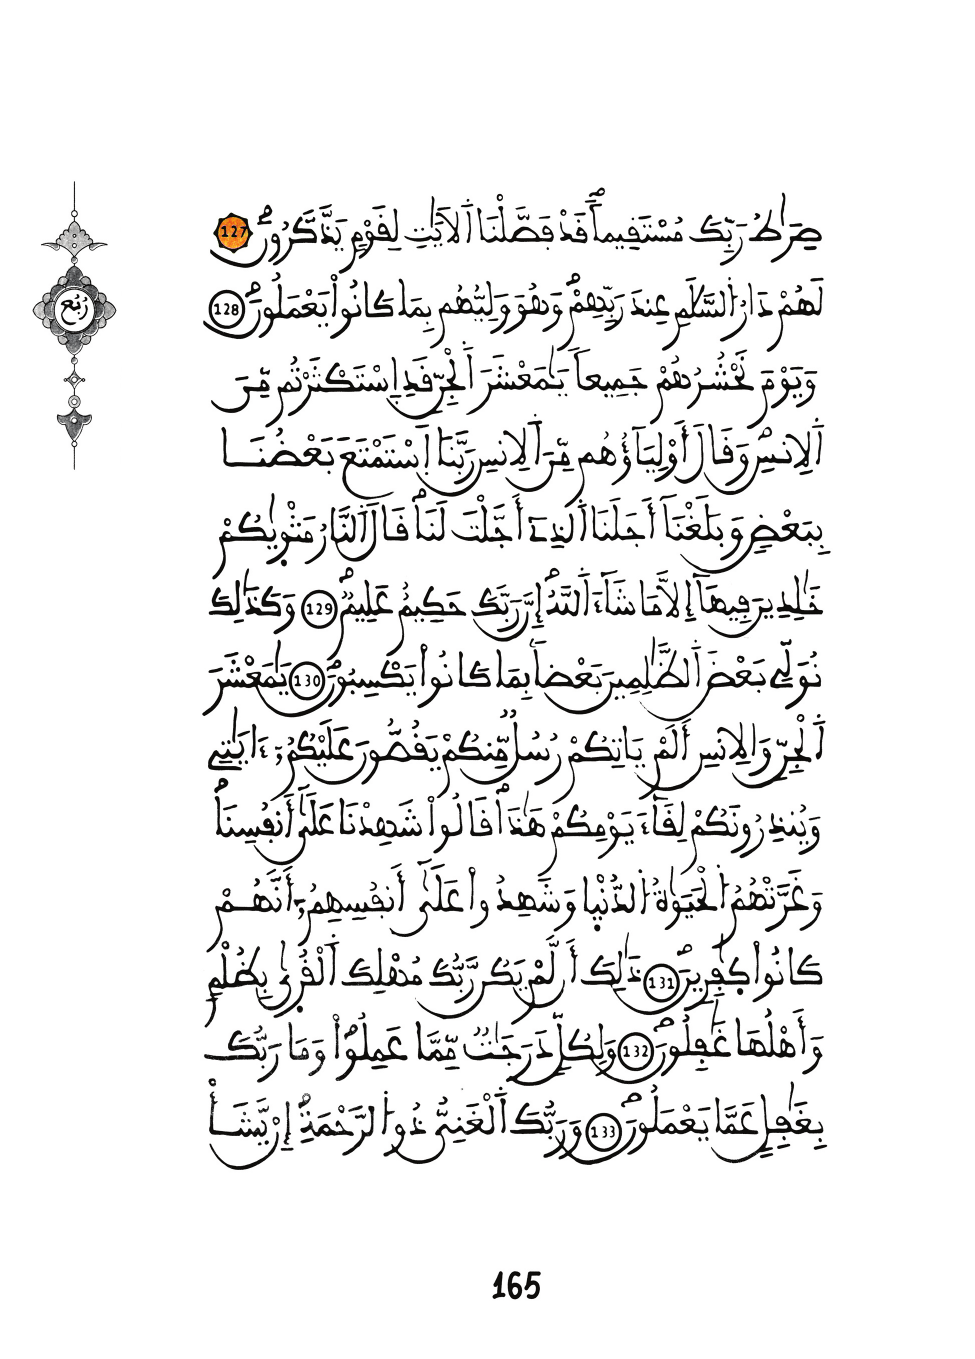 رُبُع
صِرَٰطُ رَبِّكَ مُسْتَقِيماً قَدْ فَصَّلْنَا اَ۬لَايَٰتِ لِقَوْمٖ يَذَّكَّرُونَۖ 127
لَهُمْ دَارُ اُ۬لسَّلَٰمِ عِندَ رَبِّهِمْ وَهُوَ وَلِيُّهُم بِمَا كَانُواْ يَعْمَلُونَۖ 128
وَيَوْمَ نَحْشُرُهُمْ جَمِيعاً يَٰمَعْشَرَ اَ۬لْجِنِّ قَدِ اِ۪سْتَكْثَرْتُم مِّنَ
اَ۬لِانسِۖ وَقَالَ أَوْلِيَآؤُهُم مِّنَ اَ۬لِانسِ رَبَّنَا اَ۪سْتَمْتَعَ بَعْضُنَا
بِبَعْضٖ وَبَلَغْنَآ أَجَلَنَا اَ۬لذِےٓ أَجَّلْتَ لَنَاۖ قَالَ اَ۬لنَّارُ مَثْو۪يٰكُمْ
خَٰلِدِينَ فِيهَآ إِلَّا مَا شَآءَ اَ۬للَّهُۖ إِنَّ رَبَّكَ حَكِيمٌ عَلِيمٞۖ 129 وَكَذَٰلِكَ
نُوَلِّے بَعْضَ اَ۬لظَّٰلِمِينَ بَعْضاَۢ بِمَا كَانُواْ يَكْسِبُونَۖ 130 يَٰمَعْشَرَ
اَ۬لْجِنِّ وَالِانسِ أَلَمْ يَاتِكُمْ رُسُلٞ مِّنكُمْ يَقُصُّونَ عَلَيْكُمُۥٓ ءَايَٰتِے
وَيُنذِرُونَكُمْ لِقَآءَ يَوْمِكُمْ هَٰذَاۖ قَالُواْ شَهِدْنَا عَلَيٰٓ أَنفُسِنَاۖ
وَغَرَّتْهُمُ اُ۬لْحَيَوٰةُ اُ۬لدُّنْي۪ا وَشَهِدُواْ عَلَيٰٓ أَنفُسِهِمُۥٓ أَنَّهُمْ
كَانُواْ كٰ۪فِرِينَۖ 131 ذَٰلِكَ أَن لَّمْ يَكُن رَّبُّكَ مُهْلِكَ اَ۬لْقُر۪يٰ بِظُلْمٖ
وَأَهْلُهَا غَٰفِلُونَۖ 132 وَلِكُلّٖ دَرَجَٰتٞ مِّمَّا عَمِلُواْۖ وَمَا رَبُّكَ
بِغَٰفِلٍ عَمَّا يَعْمَلُونَۖ 133 وَرَبُّكَ اَ۬لْغَنِيُّ ذُو اُ۬لرَّحْمَةِۖ إِنْ يَّشَأْ
165